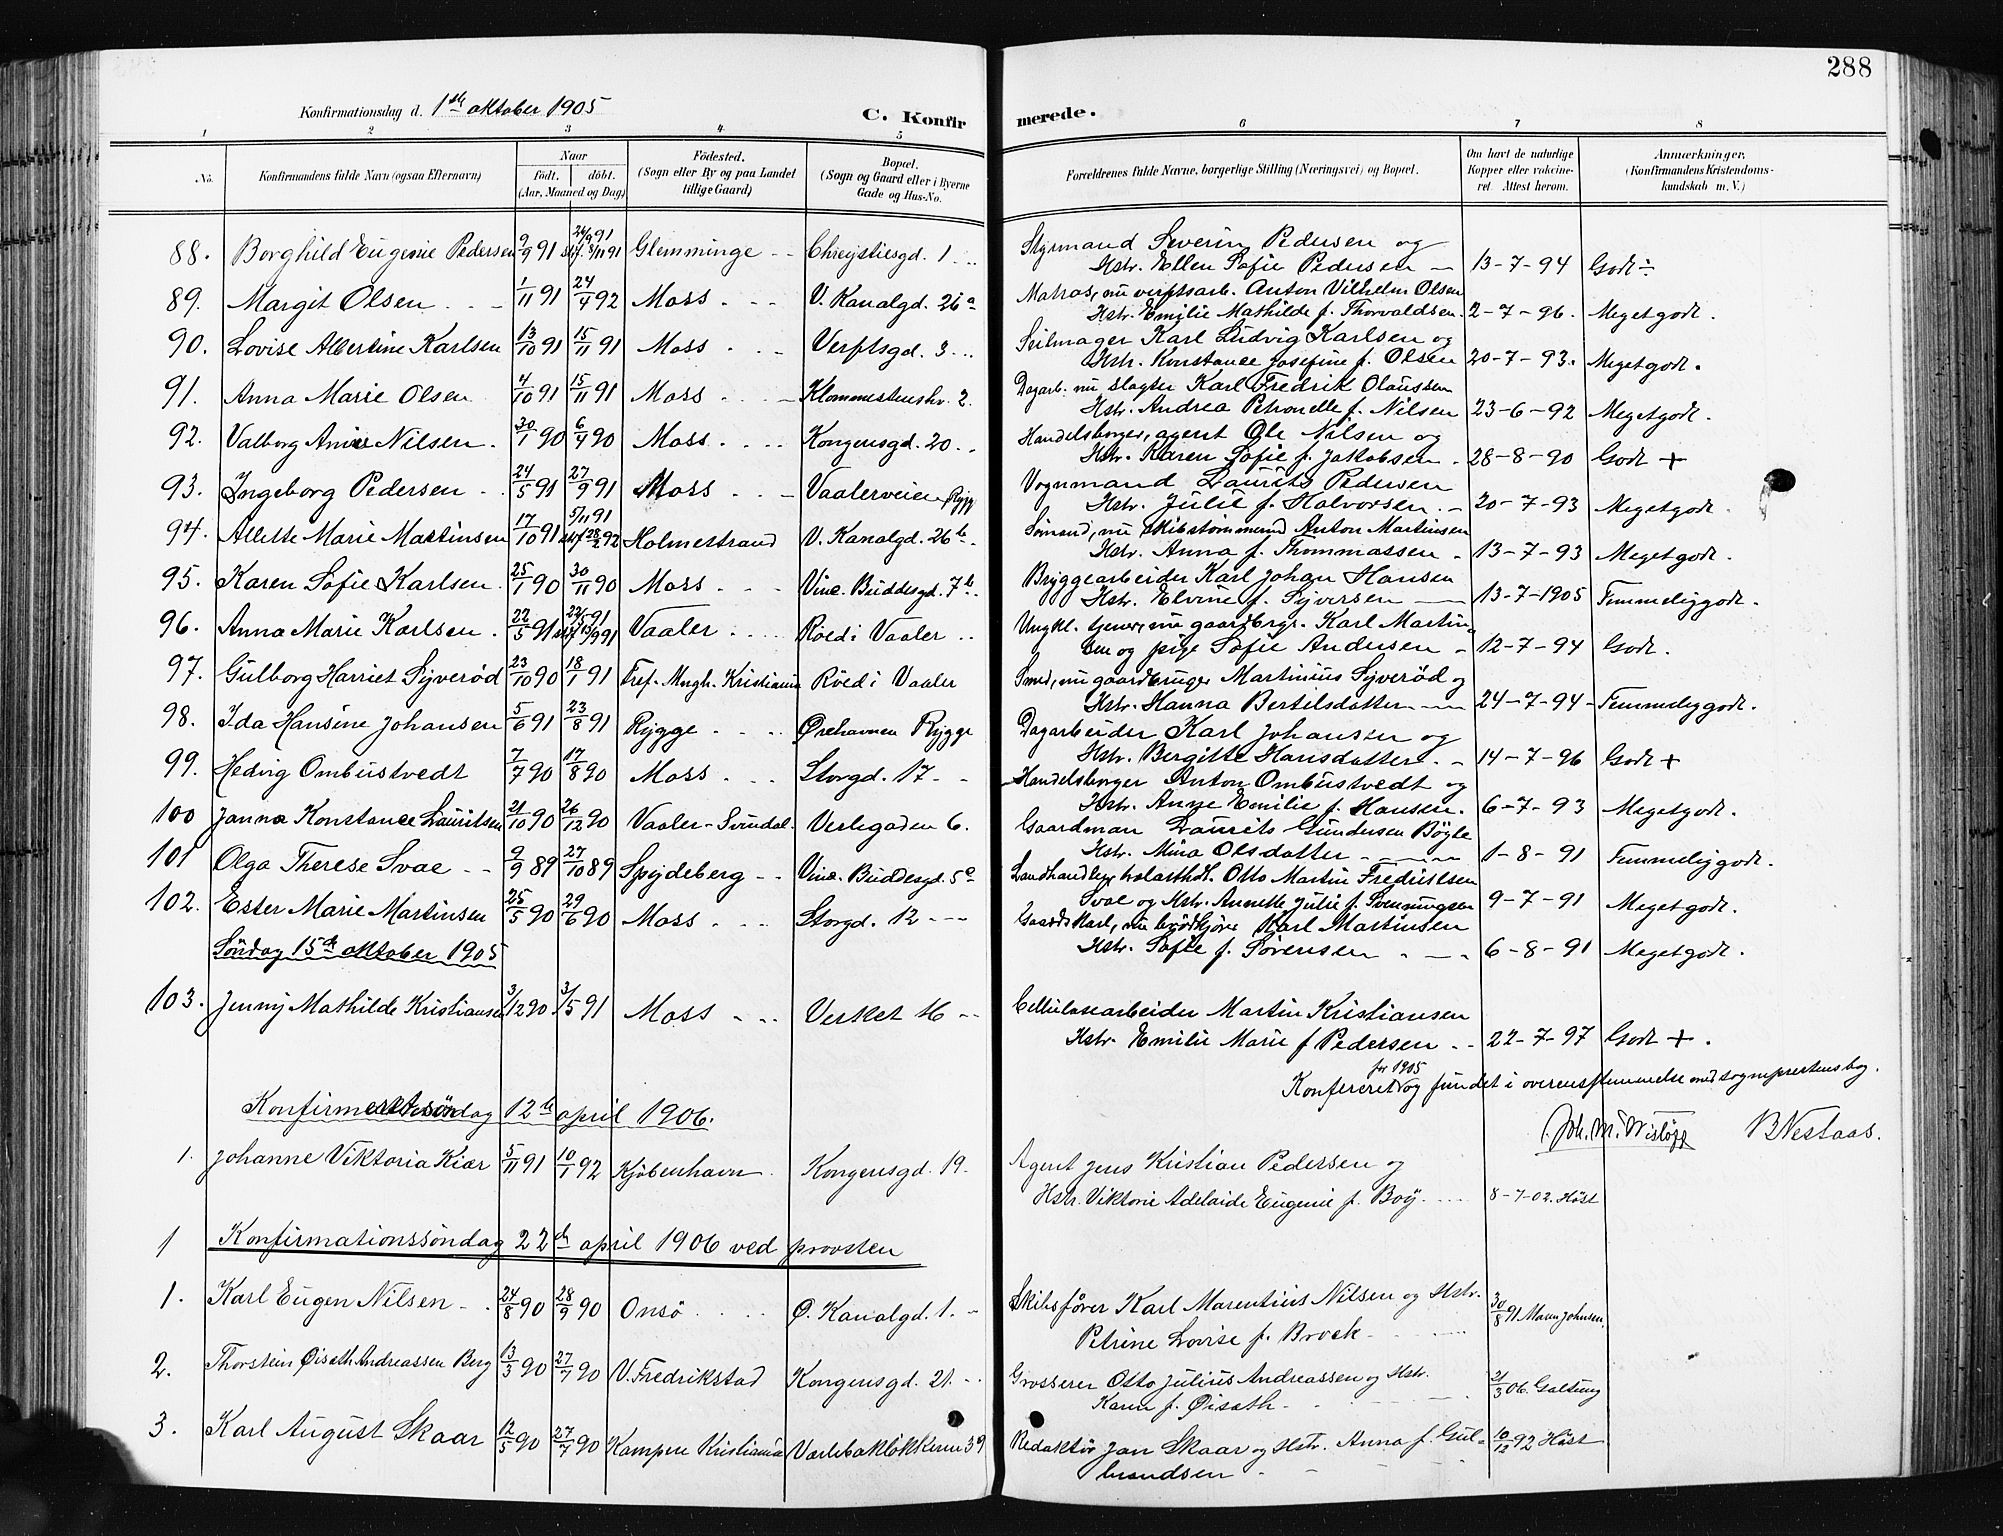 288
Konfirmationsdag d. 1ste oktober 1905
C. Konfirmerede.
1 2 3 4 5 6 7 8
No. Konfirmandens fulde Navn (ogsaa Efternavn) Naar födt. döbt. (Aar, Maaned og Dag) Födested. (Sogn eller By og paa Landet tillige Gaard) Bopæl. (Sogn og Gaard eller i Byerne Gade og Hus-No. Forældrenes fulde Navne, borgerlige Stilling (Næringsvei) og Bopæl. Om havt de naturlige Kopper eller vakcineret. Attest herom. Anmærkninger. (Konfirmandens Kristendomskundskab m. V.)
88. Borghild Eugenie Pedersen 9/9 91 26/9 91 stf. 8/11 91 Glemminge Chrystiesgd. 1. Styrmand Severin Pedersen og
Hstr. Ellen Sofie Pedersen 13-7-94 Godt ÷
89. Margit Olsen 1/11 91 24/4 92 Moss V. Kanalgd. 26a Matros, nu verftsarb. Anton Vilhelm Olsen
Hstr. Emilie Mathilde f. Thorvaldsen. 2-7-96. Megetgodt.
90. Lovise Albertine Karlsen 13/10 91 15/11 91 Moss Verftsgd. 3. Seilmager Karl Ludvig Karlsen og
Hstr. Konstance Josefine f. Olsen 20-7-93. Megetgodt.
91. Anna Marie Olsen 4/10 91 15/11 91 Moss Klommestenskr. 2. Dagarb. nu slagter Karl Fredrik Olaussen
Hstr. Andrea Petronelle f. Nilsen 23-6-92 Megetgodt.
92. Valborg Anne Nilsen. 30/1 90 6/4 90 Moss Kongensgd. 20. Handelsborger, agent Ole Nilsen og
Hstr. Karen Sofie f. Jakobsen. 28-8-90 Godt +
93. Ingeborg Pedersen 24/5 91 27/9 91 Moss Vaalerveien Rygg Vognmand Laurits Pedersen
Hstr. Julie f. Halvorsen. 20-7-93 Megetgodt.
94. Allette Marie Martinsen 17/10 91 5/11 91 stf 28/2 92 Holmestrand V. Kanalgd. 26b. Sömand, nu skibstömmermd Anton Martinsen
Hstr. Anna f. Thommassen 13-7-93 Megetgodt.
95. Karen Sofie Karlsen. 25/1 90 30/11 90 Moss Vinc. Buddesgd. 7b. Bryggearbeider Karl Johan Hansen
Hstr. Elvine f. Syversen 13-7-1905 Temmeliggodt.
96. Anna Marie Karlsen. 22/5 91 22/5 91 stf 13/9 91 Vaaler Röed i Vaaler Ungkl. tjener, nu gaardbrgr. Karl Martin-
sen og pige Sofie Andersen 12-7-94 Godt.
97. Gulborg Harriet Syveröd 23/10 90 18/1 91 Tref. Mngh. Kristiania Röed i Vaaler Smed, nu gaardbruger Martinius Syveröd og
Hstr. Hanna Bertilsdatter 24-7-94 Temmeliggodt.
98. Ida Hansine Johansen 5/6 91 23/8 91 Rygge Ørehavnen Rygge Dagarbeider Karl Johansen og
Hstr. Bergitte Hansdatter. 14-7-96 Godt +
99. Hedvig Ombustvedt 7/7 90 17/8 90 Moss Storgd. 17 Handelsborger Anton Ombustvedt og
Hstr. Anne Emilie f. Hansen. 6-7-93 Megetgodt.
100 Janna Konstance Lauritsen 21/10 90 26/12 90 Vaaler-Svindal. Verlegaden 6. Gaardman Laurits Gundersen Bögle
Hstr. Mina Olsdatter 1-8-91 Temmeliggodt.
101 Olga Therese Svae 9/9 89 27/10 89 Spydeberg Vinc. Buddesgd. 5a Landhandler Otto Martin Fredriksen
Svae og Hstr. Annette Julie f. Svenningsen 9-7-91 Megetgodt.
102. Ester Marie Martinsen 25/5 90 29/6 90 Moss Storgd. 12 Gaardskarl, nu brödkjörer Karl Martinsen
Hstr. Sofie f. Sörensen 6-8-91 Megetgodt.
Söndag 15de oktober 1905
103. Jenny Mathilde Kristiansen 3/12 90 3/5 91 Moss Verket 16 Cellulosearbeider Martin Kristiansen
Hstr. Emilie Marie f Pedersen 22-7-97 Godt +.
Konfereret for 1905 og fundet i overensstemmelse med sogneprestens bog.
Joh. M. Wisløff B. Nestaas.
Konfirm söndag 12te april 1906.
1. Johanne Viktoria Kiær 5/11 91 10/1 92 Kjöbenhavn Kongensgd. 19. Agent Jens Kristian Pedersen og
Hstr. Viktorie Adelaide Eugenie f. Boÿ. 8-7-02. Höst
1 Konfirmationssöndag 22de april 1906 ved provsten
1. Karl Eugen Nilsen 24/8 90 28/9 90 Onsö Ø. Kanalgd. 1. Skibsförer Karl Marentius Nilsen og Hstr.
Petrine Lovise f. Brock 30/8 91 Mam Johnsen.
2. Thorstein Øisath Andreassen Berg 13/3 90 27/7 90 V. Fredrikstad Kongensgd. 21. Grosserer Otto Julius Andreassen og Hstr.
Karen f. Øisath. 21/3 06. Galtung
3. Karl August Skaar 12/5 90 27/7 90 Kampen Kristiania Varlebaklökkerne 39 Redaktör Jan Skaar og Hstr. Anna f. Gul-
brandsen 10/12 92 Höst